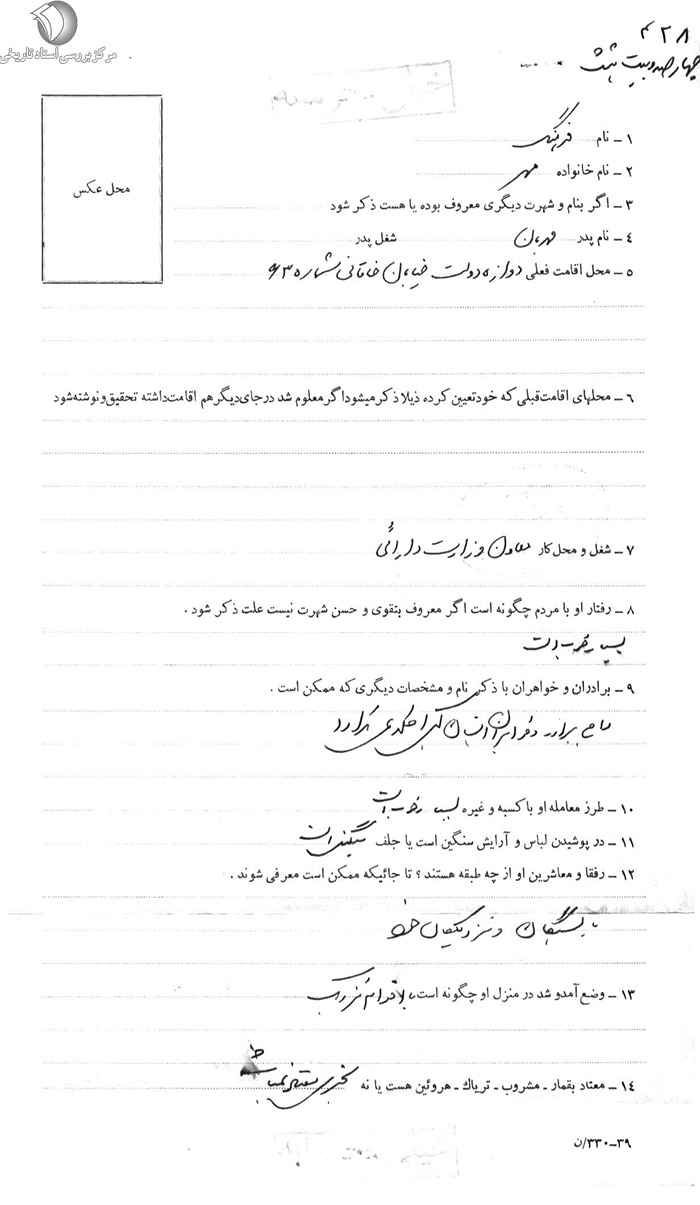 مرکز بررسی اسناد تاریخی
۴۲۸
چهارصد و بیست و هشت
محل عکس
۱ - نام فرهنگ
۲ - نام خانواده مهر
۳ - اگر بنام و شهرت دیگری معروف بوده یا هست ذکر شود
۴ - نام پدر مهربان شغل پدر
۵ - محل اقامت فعلی دروازه دولت خیابان خاقانی شماره ۶۳
۶ - محلهای اقامت‌قبلی که خودتعیین کرده ذیلا ذکر میشوداگر معلوم شد درجای‌دیگر هم اقامت‌داشته تحقیق‌و‌نوشته‌شود
۷ - شغل و محل کار معاون وزارت دارائی
۸ - رفتار او با مردم چگونه است اگر معروف بتقوی و حسن شهرت نیست علت ذکر شود .
بسیار خوب است
۹ - برادران و خواهران با ذکر نام و مشخصات دیگری که ممکن است .
۱۰ - طرز معامله او با کسبه و غیره بسیار خوب است
۱۱ - در پوشیدن لباس و آرایش سنگین است یا جلف سنگین است
۱۲ - رفقا و معاشرین او از چه طبقه هستند ؟ تا جائیکه ممکن است معرفی شوند .
بستگان و نزدیکان خود
۱۳ - وضع آمدو شد در منزل او چگونه است
۱۴ - معتاد بقمار - مشروب - تریاك - هروئین هست یا نه بچیزی معتاد نمیباشد
۳۳۰-۳۹/ن